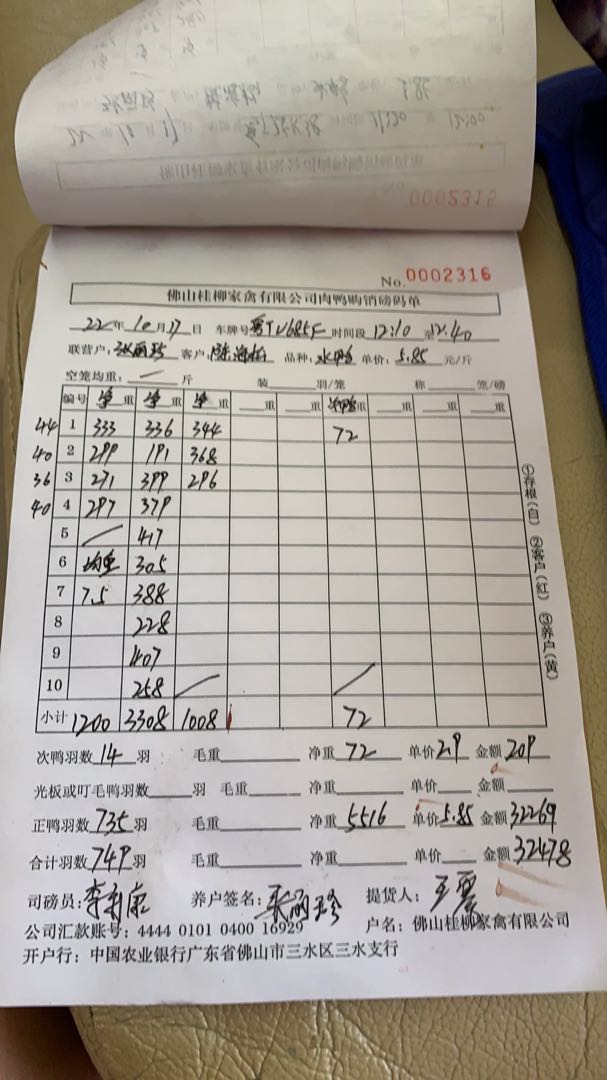 0002315
No. 0002316
佛山桂柳家禽有限公司肉鸭购销磅码单
22年10月17日 车牌号 粤TU685F 时间段 12:10 至 12:40
联营户: 张丽珍 客户: 陈海松 品种: 水鸭 单价: 5.85 元/斤
空笼均重: 斤 装 羽/笼 称 笼/磅
编号 净重 净重 净重 重 重 重 重 重 重
44 1 333 336 344 72
40 2 299 191 368
36 3 271 399 296
40 4 297 379
5 417
6 均重 305
7 7.5 388
8 228
9 407
10 258
小计 1200 3308 1008 72
①存根(白) ②客户(红) ③养户(黄)
次鸭羽数 14 羽 毛重 净重 72 单价 2.9 金额 209
光板或叮毛鸭羽数 羽 毛重 净重 单价 金额
正鸭羽数 735 羽 毛重 净重 5516 单价 5.85 金额 32269
合计羽数 749 羽 毛重 净重 单价 金额 32478
司磅员: 养户签名: 张丽珍 提货人:
公司汇款账号: 4444 0101 0400 16929 户名: 佛山桂柳家禽有限公司
开户行: 中国农业银行广东省佛山市三水区三水支行